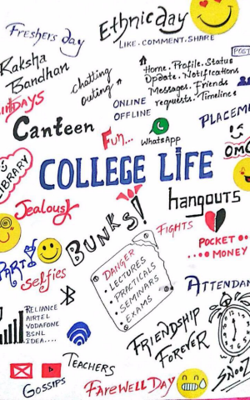 Freshers day
Ethnic day
LIKE. COMMENT. SHARE
Raksha
Bandhan
chatting
outing
Home. Profile. Status
Update. Notifications
Messages. Friends
requests. Timeline
POST
ONLINE
OFFLINE
Canteen
Fun...
WhatsApp
PLACEME
LIBRARY
OMG
COLLEGE LIFE
Jealousy
hangouts
BUNKS!
FIGHTS
POCKET
MONEY
Selfies
DANGER
LECTURES
PRACTICALS
SEMINARS
EXAMS
ATTENDAN
RELIANCE
AIRTEL
VODAFONE
BSNL
IDEA....
FRIENDSHIP
FOREVER
TEACHERS
GOSSIPS
FAREWELL DAY